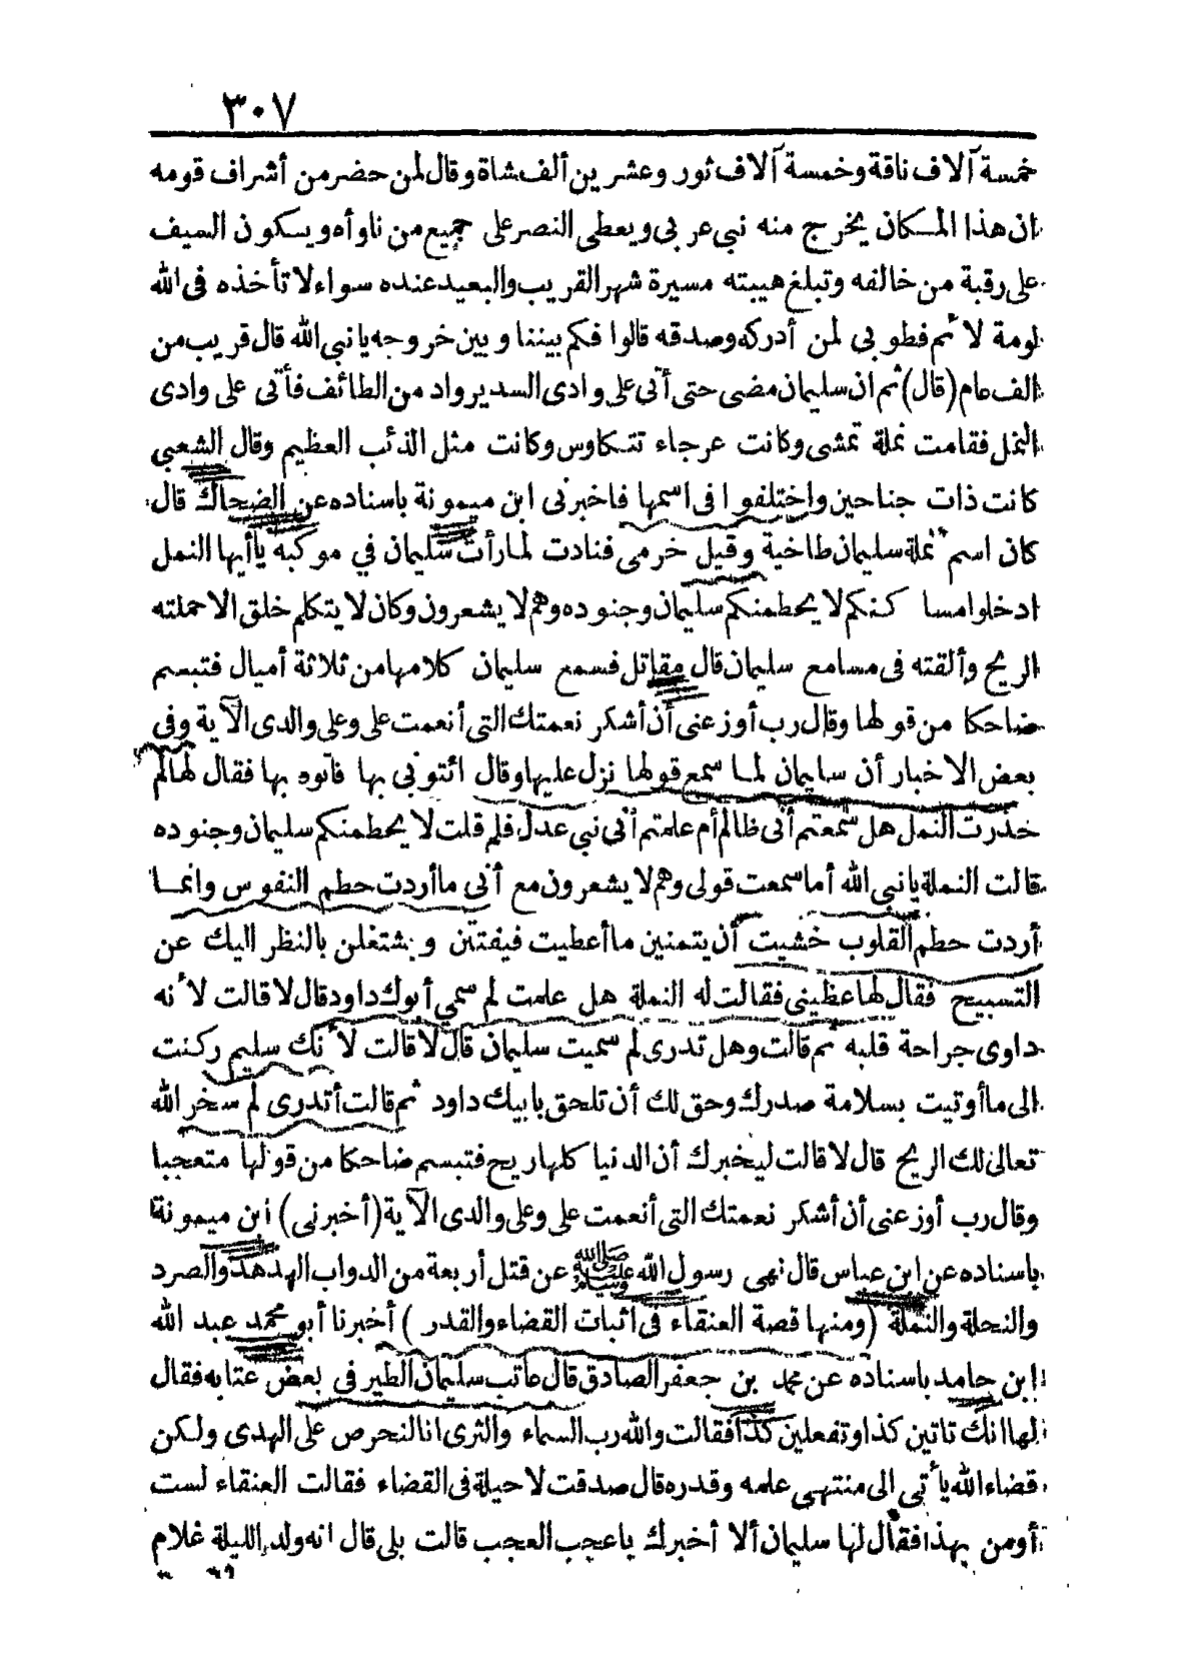 ٣٠٧
خمسة آلاف ناقة وخمسة آلاف ثور وعشرين ألف شاة وقال لمن حضر من أشراف قومه
ان هذا المكان يخرج منه نبي عربى ويعطى النصر على جميع من ناوأه ويكون السيف
على رقبة من خالفه وتبلغ هيبته مسيرة شهر القريب والبعيد عنده سواء لا تأخذه فى الله
لومة لائم فطوبى لمن أدركه وصدقه قالوا فكم بيننا وبين خروجه يا نبى الله قال قريب من
الف عام (قال) ثم ان سليمان مضى حتى أتى على وادى السدير واد من الطائف فأتى على وادى
النمل فقامت نملة تمشى وكانت عرجاء تتكاوس وكانت مثل الذئب العظيم وقال الشعبي
كانت ذات جناحين واختلفوا فى اسمها فاخبرنى ابن ميمونة باسناده عن الضحاك قال
كان اسم نملة سليمان طاخية وقيل خرمى فنادت لما رأت سليمان في موكبه يا أيها النمل
ادخلوا مساكنكم لا يحطمنكم سليمان وجنوده وهم لا يشعرون وكان لا يتكلم خلق الا حملته
الريح وألقته فى مسامع سليمان قال مقاتل فسمع سليمان كلامها من ثلاثة أميال فتبسم
ضاحكا من قولها وقال رب أوزعنى أن أشكر نعمتك التى أنعمت على وعلى والدى الآية وفى
بعض الاخبار أن سليمان لما سمع قولها نزل عليها وقال ائتونى بها فأتوه بها فقال لها لم
حذرت النمل هل سمعتم أنى ظالم أم علمتم أنى نبى عدل فلم قلت لا يحطمنكم سليمان وجنوده
قالت النملة يا نبى الله أما سمعت قولى وهم لا يشعرون مع أنى ما أردت حطم النفوس وانما
أردت حطم القلوب خشيت أن يتمنين ما أعطيت فيفتتن ويشتغلن بالنظر اليك عن
التسبيح فقال لها عظينى فقالت له النملة هل علمت لم سمي أبوك داود قال لا قالت لأنه
داوى جراحة قلبه ثم قالت وهل تدرى لم سميت سليمان قال لا قالت لأنك سليم ركنت
الى ما أوتيت بسلامة صدرك وحق لك أن تلحق بابيك داود ثم قالت أتدرى لم سخر الله
تعالى لك الريح قال لا قالت ليخبرك أن الدنيا كلها ريح فتبسم ضاحكا من قولها متعجبا
وقال رب أوزعنى أن أشكر نعمتك التى أنعمت على وعلى والدى الآية (أخبرنى) ابن ميمونة
باسناده عن ابن عباس قال نهى رسول الله صلى الله عليه وسلم عن قتل أربعة من الدواب الهدهد والصرد
والنحلة والنملة (ومنها قصة العنقاء فى اثبات القضاء والقدر) أخبرنا أبو محمد عبد الله
ابن حامد باسناده عن محمد بن جعفر الصادق قال عاتب سليمان الطير فى بعض عتابه فقال
لها انك تاتين كذا وتفعلين كذا فقالت والله رب السماء والثرى انا لنحرص على الهدى ولكن
قضاء الله يأتى الى منتهى علمه وقدره قال صدقت لا حيلة فى القضاء فقالت العنقاء لست
أومن بهذا فقال لها سليمان ألا أخبرك باعجب العجب قالت بلى قال انه ولد الليلة غلام